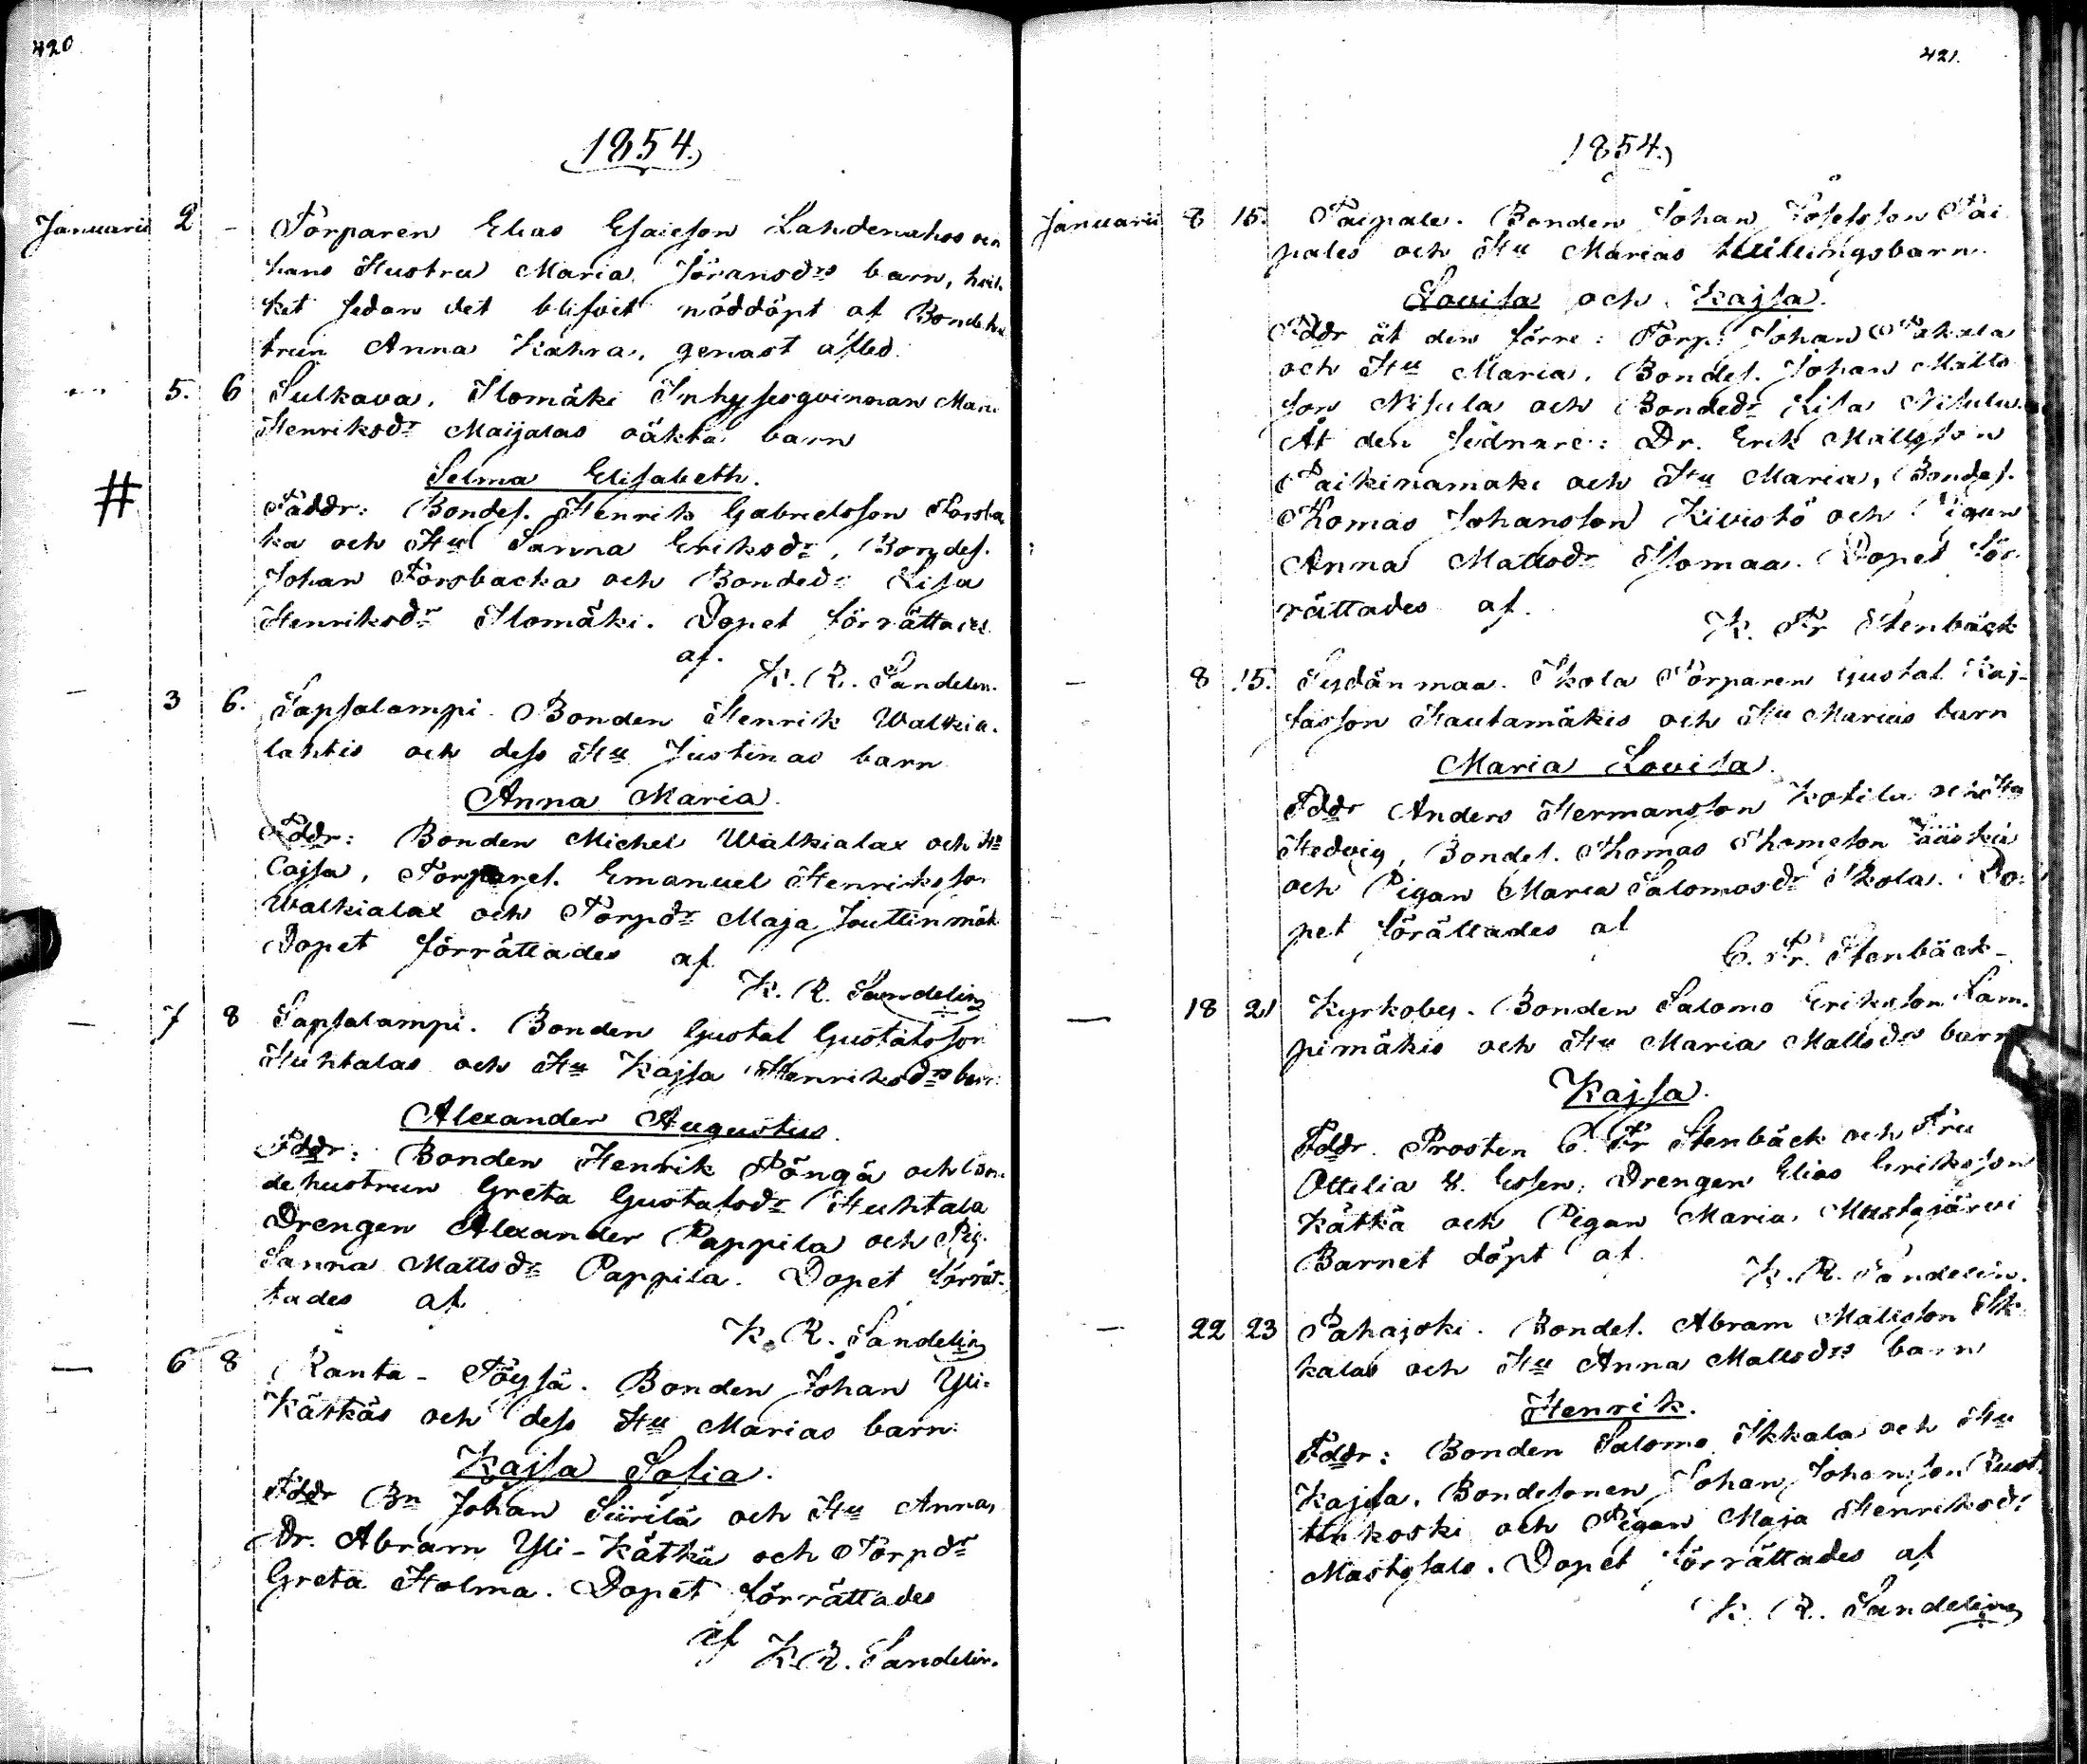 420
1854.
Januarii 2 - Torparen Elias Esaieson Lahdenahos och
hans Hustru Maria Joransdrs barn, hvil-
ket sedan det blifvit nöddöpt af Bondehu
trun Anna Kahra, genast afled.
5. 6 Sulkava, Ilomäki Inhysesqvinnan Mari
Henriksdr Maijalas oäkta barn
Selma Elisabeth.
#
Faddr: Bondes. Henrik Gabrielsson Forsba
ka och Hu Sanna Eriksdr, Bondes.
Johan Forsbacka och Bondedr Lisa
Henriksdr Ilomäki. Dopet förrättades
af.
K. R. Sandelin.
- 3 6. Sapsalampi. Bonden Henrik Walkia-
lahtis och dess Hu Justinas barn
Anna Maria.
Fddr: Bonden Michel Walkialax och Hu
Cajsa, Torpares. Emanuel Henriksson
Walkialax och Torpdr Maja Jouttinmäk
Dopet förrättades af
K. R. Sandelin
- 7 8 Sapsalampi. Bonden Gustaf Gustafsson
Huhtalas och Hu Kajsa Henriksdrs barn
Alexander Augustus.
Fddr: Bonden Henrik Pöngä och Bon-
dehustrun Greta Gustafsdr Huhtala
Drengen Alexander Pappila och Pig.
Sanna Mattsdr Pappila. Dopet förrät-
tades af
K. R. Sandelin
- 6 8 Ranta-Töysä. Bonden Johan Yli-
Kätkäs och dess Hu Marias barn
Kajsa Sofia.
Fddr Bn Johan Siirilä och Hu Anna,
Dr. Abram Yli-Kätkä och Torpdr
Greta Holma. Dopet förrättades
af K. R. Sandelin.
421.
1854.
Januarii 8 15. Taipale. Bonden Johan Josefsson Tai
pales och Hu Marias tvillingsbarn.
Lovisa och Kajsa.
Fddr åt den förre: Torp. Johan Pakala
och Hu Maria, Bondes. Johan Matts
son Nisula och Bondedr Lisa Nisula.
Åt den sednare: Dr. Erik Mattsson
Paikinamäki och Hu Maria, Bondes.
Thomas Johansson Kivistö och Pigan
Anna Mattsdr Isomaa. Dopet för-
rättades af.
K. Fr Stenbäck
- 8 15. Sydänmaa. Skola Torparen Gustaf Kaj-
sasson Hautamäkis och Hu Marias barn
Maria Lovisa.
Fddr Anders Hermansson Kotila och Hu
Hedvig, Bondes. Thomas Thomsson Jääskä
och Pigan Maria Salomosdr Skola. Do-
pet förrättades af
C. Fr. Stenbäck
- 18 21 Kyrkoby. Bonden Salomo Eriksson Lam-
pimäkis och Hu Maria Mattsdrs barn
Kajsa.
Fddr. Prosten C. Fr Stenbäck och Fru
Ottilia v. Essen, Drengen Elias Eriksson
Kätkä och Pigan Maria Mustajärvi
Barnet döpt af
K. R. Sandelin.
- 22 23 Pahajoki. Bondes. Abram Mattsson Ik-
kalas och Hu Anna Mattsdrs barn
Henrik.
Fddr: Bonden Salomo Ikkala och Hu
Kajsa, Bondesonen Johan Johansson Ruot-
tinkoski och Pigan Maja Henriksdr
Mastosalo. Dopet förrättades af
K. R. Sandelin